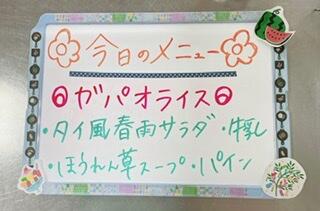 今日のメニュー
◎ガパオライス◎
・タイ風春雨サラダ ・牛乳
・ほうれん草スープ ・パイン